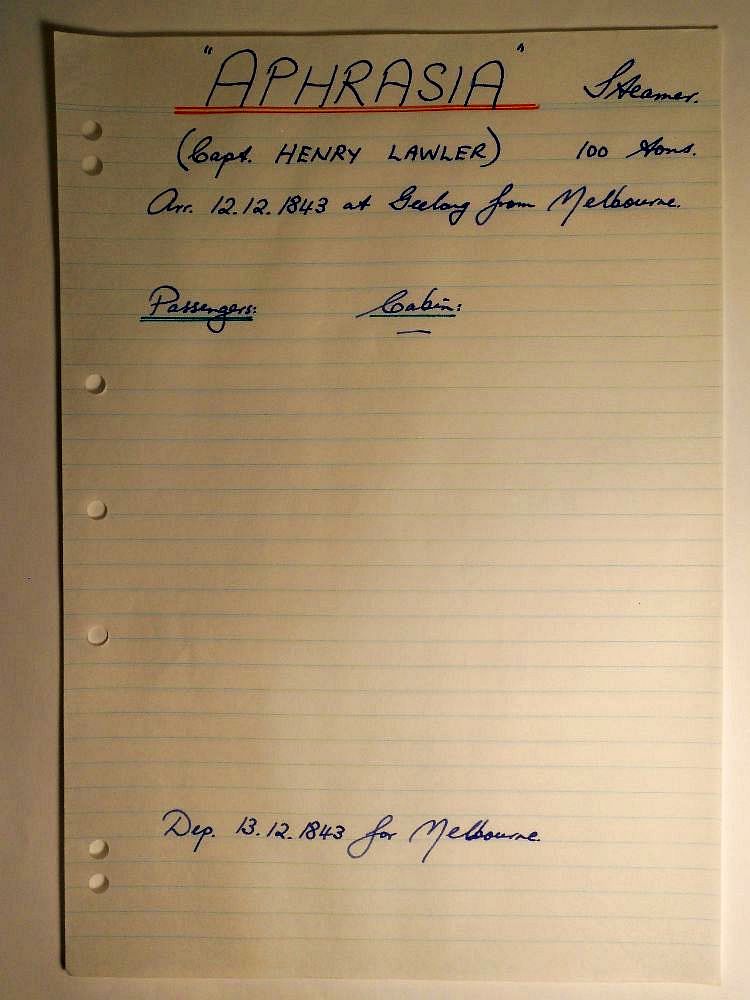 "APHRASIA" Steamer.
(Capt. HENRY LAWLER) 100 tons.
Arr. 12.12.1843 at Geelong from Melbourne.
Passengers: Cabin:
—
Dep. 13.12.1843 for Melbourne.